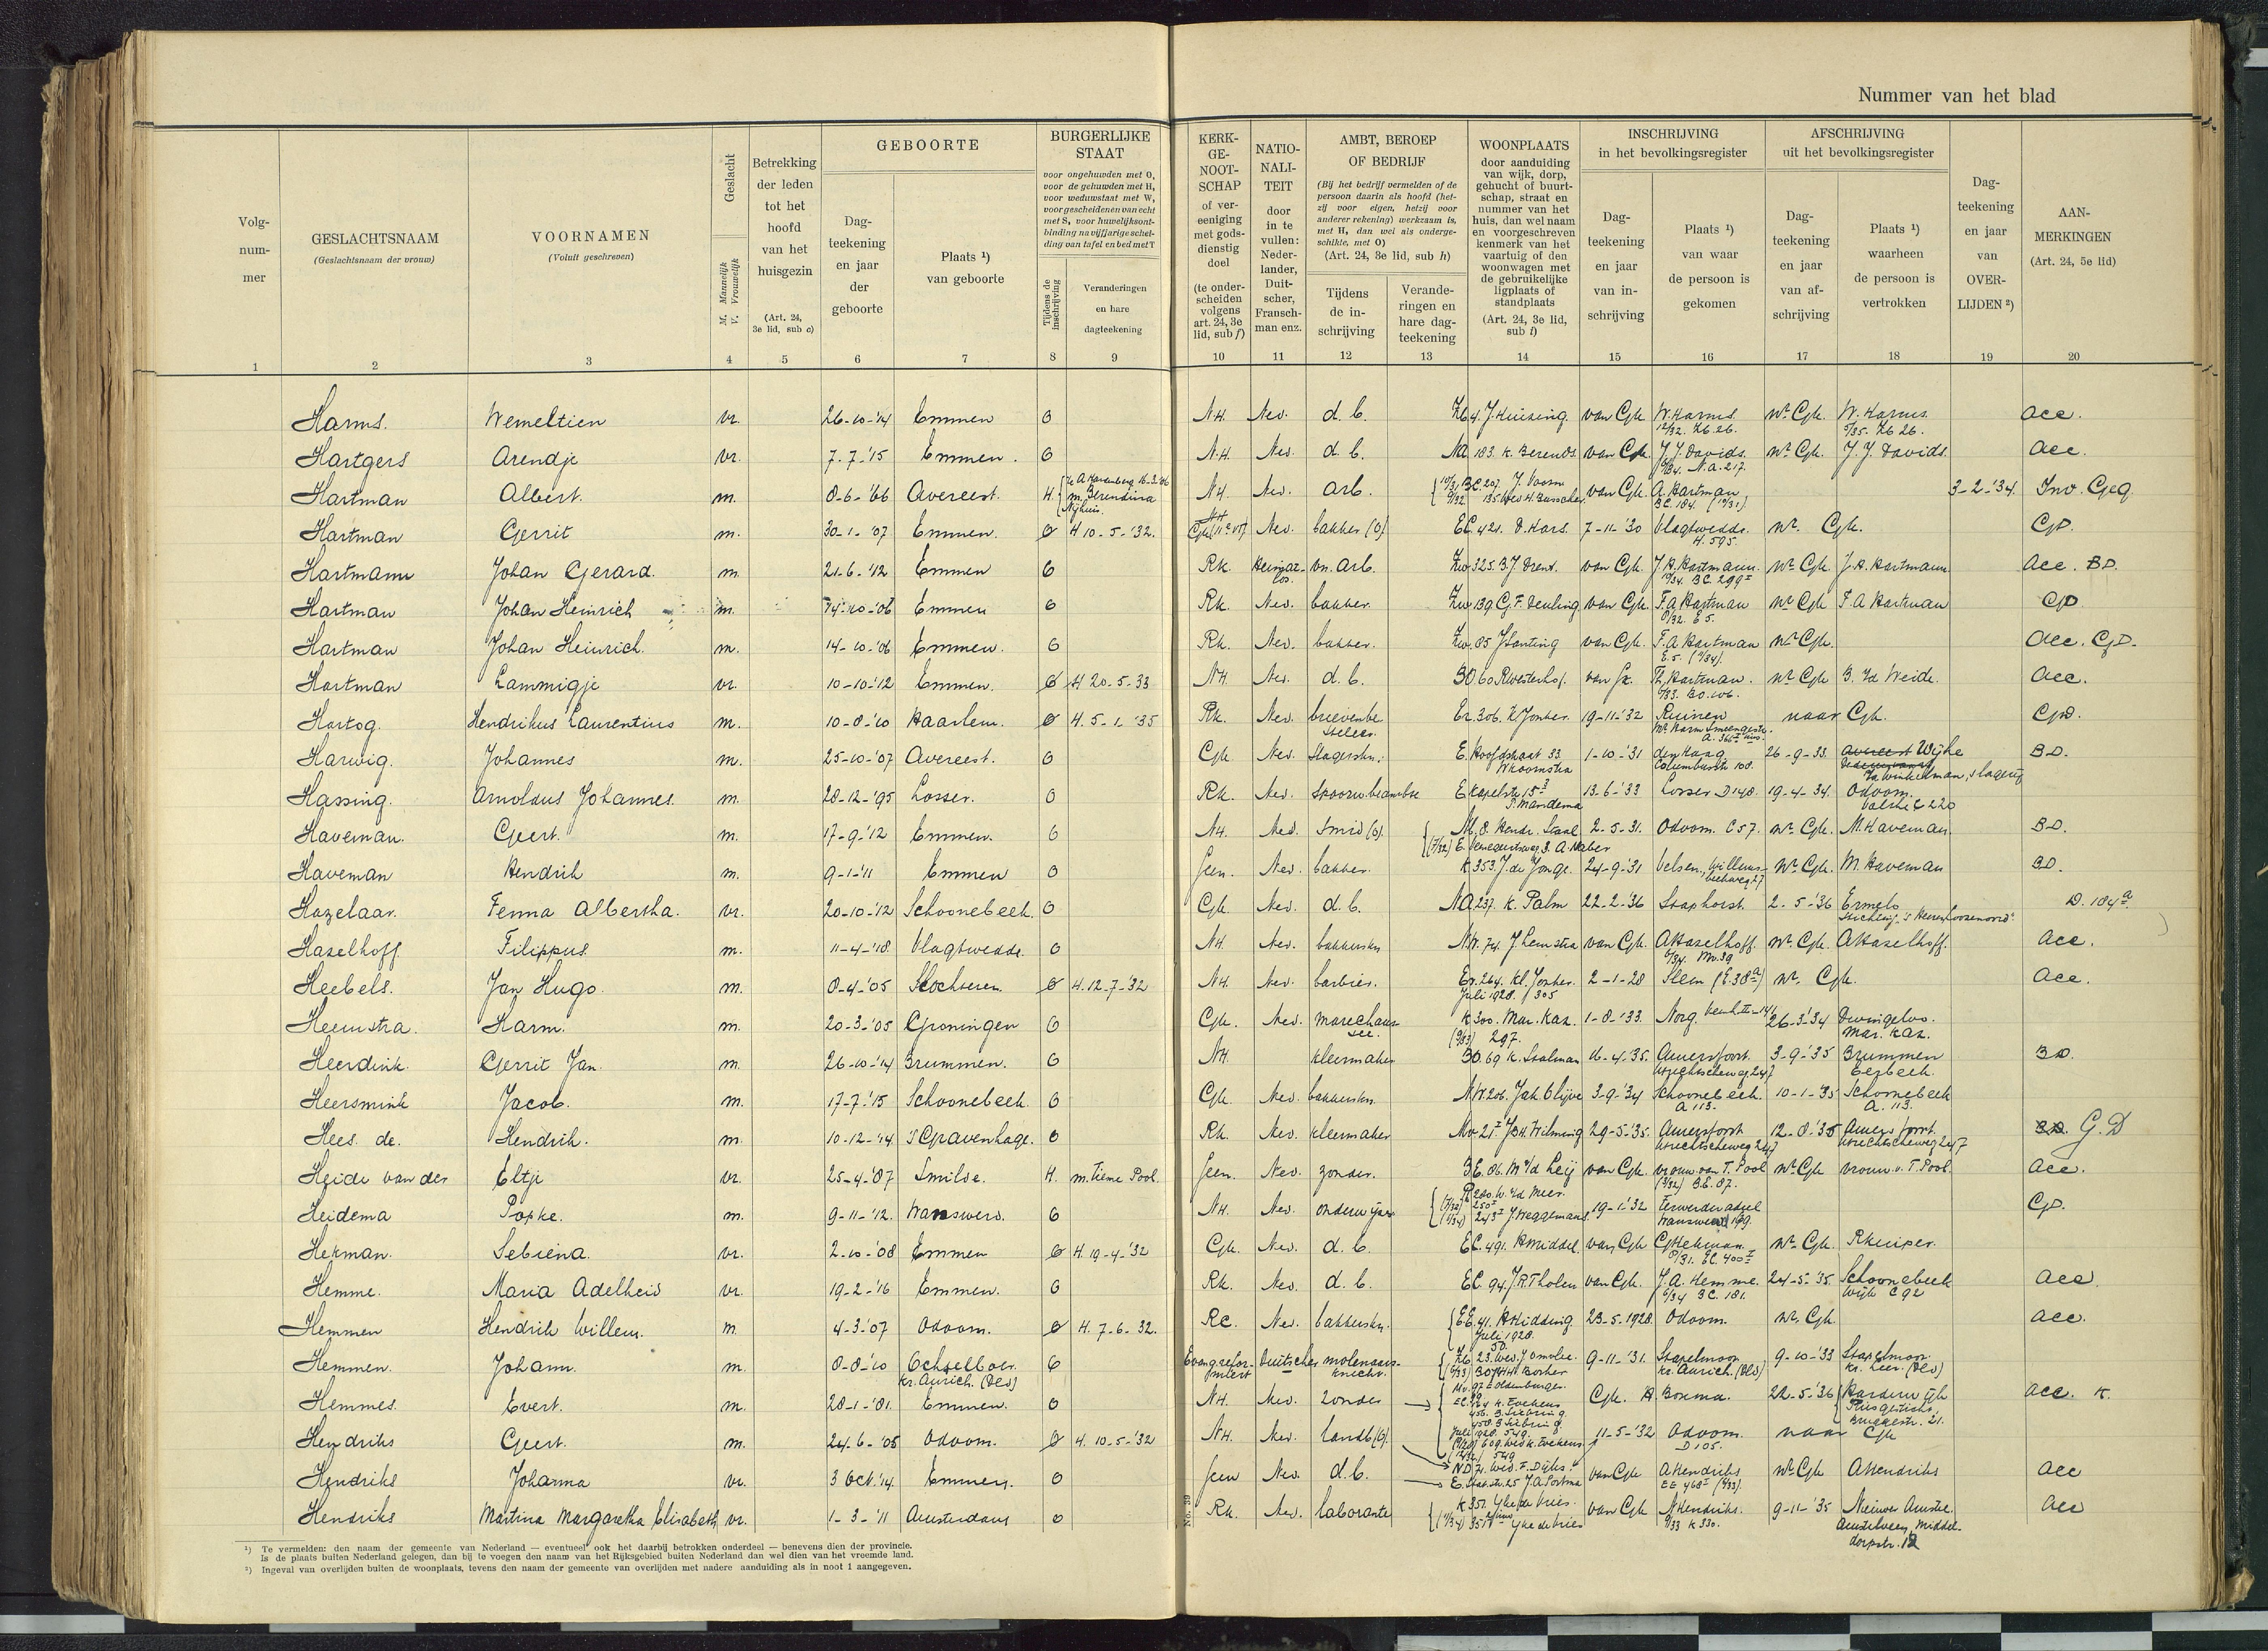 Nummer van het blad
Volg-
num-
mer
GESLACHTSNAAM
(Geslachtsnaam der vrouw)
VOORNAMEN
(Voluit geschreven)
Geslacht
M. Mannelijk
V. Vrouwelijk
Betrekking
der leden
tot het
hoofd
van het
huisgezin
(Art. 24,
3e lid, sub c)
GEBOORTE
Dag-
teekening
en jaar
der
geboorte
Plaats ¹)
van geboorte
BURGERLIJKE
STAAT
voor ongehuwden met O,
voor de gehuwden met H,
voor weduwstaat met W,
voor gescheidenen van echt
met S, voor huwelijksont-
binding na vijfjarige schei-
ding van tafel en bed met T
Tijdens de
inschrijving
Veranderingen
en hare
dagteekening
KERK-
GE-
NOOT-
SCHAP
of ver-
eeniging
met gods-
dienstig
doel
(te onder-
scheiden
volgens
art. 24, 3e
lid, sub f)
NATIO-
NALI-
TEIT
door
in te
vullen:
Neder-
lander,
Duit-
scher,
Fransch-
man enz.
AMBT, BEROEP
OF BEDRIJF
(Bij het bedrijf vermelden of de
persoon daarin als hoofd (het-
zij voor eigen, hetzij voor
anderer rekening) werkzaam is,
met H, dan wel als onderge-
schikte, met O)
(Art. 24, 3e lid, sub h)
Tijdens
de in-
schrijving
Verande-
ringen en
hare dag-
teekening
WOONPLAATS
door aanduiding
van wijk, dorp,
gehucht of buurt-
schap, straat en
nummer van het
huis, dan wel naam
en voorgeschreven
kenmerk van het
vaartuig of den
woonwagen met
de gebruikelijke
ligplaats of
standplaats
(Art. 24, 3e lid,
sub i)
INSCHRIJVING
in het bevolkingsregister
Dag-
teekening
en jaar
van in-
schrijving
Plaats ¹)
van waar
de persoon is
gekomen
AFSCHRIJVING
uit het bevolkingsregister
Dag-
teekening
en jaar
van af-
schrijving
Plaats ¹)
waarheen
de persoon is
vertrokken
Dag-
teekening
en jaar
van
OVER-
LIJDEN ²)
AAN-
MERKINGEN
(Art. 24, 5e lid)
1 2 3 4 5 6 7 8 9 10 11 12 13 14 15 16 17 18 19 20
Harms. Wemeltien vr. 26-10-'14 Emmen O N.H. Ned. d.b. Zb 4. J. Kuising van Gk W. Harms. nr. Gk. W. Harms. acc.
12/32. Zb 26. 5/35. Zb 26.
Hartgers Arendje vr. 7-7-'15 Emmen. O N.H. Ned. d.b. NA 183. K. Berends van Gk J.J. Davids. nr Gk. J.J. Davids. acc.
N.a. 217.
Hartman Albert. m. 8-6-'66 Avereest. H. m. Berendina Nijhuis. N.H. Ned. arb. van Gk. A. Hartman 3-2-'34. Inv. Geq.
BC. 184. (10/31)
Hartman Gerrit m. 30-1-'07 Emmen. O H 10-5-'32. Ned. bakker (O) EC 421. D. Hars. 7-11-'30 Vlagtwedde. nr. Gk. GD.
H. 595.
Hartmann Johan Gerard. m. 21-6-'12 Emmen O Rk. vn. arb. Zw 325. B.J. Drent. van Gk. J.H. Hartmann. nr Gk J.H. Hartmann acc. BD.
BC. 299 I
Hartman Johan Heinrich m. 14-10-'06 Emmen O Rk. Ned. bakker. Zw 139 G.F. Deuling van Gk. F.A. Hartman nr Gk F.A. Hartman GD
8/32. E 5.
Hartman Johan Heinrich. m. 14-10-'06 Emmen. O Rk. Ned. bakker. Zw. 85 J. Santing van Gk. F.A. Hartman nr Gk. acc. GD.
Hartman Lammigje vr. 10-10-'12 Emmen. O H 20-5-33 N.H. Ned. d.b. BO 60 R. Westerhof. van Gk. Th. Hartman. nr Gk B. v/d Weide. acc.
BO. 106.
Hartog. Hendrikus Laurentius m. 10-8-'10 Haarlem. O H. 5-1-'35 Rk. Ned. brievenbe steller. Er. 306. K. Jonker. 19-11-'32 Ruinen naar Gk. GD.
Harwig. Johannes m. 25-10-'07 Avereest. O Gk. Ned. slagerskn. E. Hoofdstraat 33. 1-10-'31 den Haag 26-9-33. Avereest Wijhe BD.
W. Koomstra Columbusstr 108. Winkelman, slagerij
Hassing. Arnoldus Johannes. m. 28-12-'95 Losser. O Rk. Ned. Spoorw. beambte E. Kapelstr 15 13-6-'33 Losser D 148. 19-4-34. Odoom.
Valthe C 220
Haveman. Geert. m. 17-9-'12 Emmen. O N.H. Ned. smid (O). M. 8. Hendr. Staal 2-5-31. Odoom. C 57. nr. Gk. M. Haveman BD.
Haveman Hendrik m. 9-1-'11 Emmen O Geen. Ned. bakker. K 353. J. de Jonge. 24-9-'31 Velsen, Willems- nr. Gk. M. Haveman BD.
Hazelaar. Fenna Albertha. vr. 20-10-'12 Schoonebeek. O Gk. Ned. d.b. NA 237. K. Palm 22-2-'36 Staphorst. 2-5-'36 Ermelo D. 184 a.
Haselhoff Filippus. m. 11-4-'18. Vlagtwedde. O N.H. Ned. bakkerskn NW. 74. J. Leinstra van Gk. A. Haselhoff. nr. Gk. A. Haselhoff. acc.
Heebels. Jan Hugo. m. 8-4-'05 Slochteren. O H. 12-7-'32 N.H. Ned. barbier. Er. 264. Kl. Jonker. 2-1-28 Sleen (E. 38 a) nr. Gk. acc.
Juli 1928. 305
Heemstra. Harm. m. 20-3-'05 Groningen O Gk. Ned. marechaus- see. K 300. Mar. Kaz. 1-8-'33. Norg. 26-3-'34 Dwingeloo.
(9/33) 297. Mar. Kaz.
Heerdink. Gerrit Jan. m. 26-10-'14 Brummen. O N.H. kleermaker BO. 69 K. Saalman 16-4-'35. Amersfoort. 3-9-'35 Brummen BD.
Utrechtscheweg 247 Eerbeek.
Heersmink Jacob. m. 17-7-'15 Schoonebeek. O Gk. Ned. bakkerskn. NW. 206. Jak. Olijve 3-9-'34 Schoonebeek. 10-1-'35 Schoonebeek
A 113. A. 113.
Hees. de. Hendrik. m. 10-12-'14 's Gravenhage. O Rk. Ned. kleermaker Mv 21 I J.B.H. Wilming 29-5-'35. Amersfoort 12-8-'35 Amersfoort. BD. G.D
Utrechtscheweg 247 Utrechtscheweg 247
Heide van der Eltje vr. 25-4-'07 Smilde. H. m. Tieme Pool. Geen. Ned. zonder. BE. 86. M. v/d Leij van Gk. vrouw van T. Pool nr Gk vrouw v. T. Pool. acc.
(3/32) BE. 87.
Heidema Popke. m. 9-11-'12. Wanswerd. O N.H. Ned. onderwijzer 243 I J. Weggemans. 19-1-'32 Ferwerderadeel GD.
Wanswerd 199.
Hekman. Sebiena. vr. 2-10-'08 Emmen O H. 19-4-'32 Gk. Ned. d.b. EC. 491. H. Middel. van Gk G. Hekman. nr. Gk. R. Kuiper.
8/31. EC. 400 I
Hemme. Maria Adelheid vr. 19-2-'16 Emmen. O Rk. Ned. d.b. EC. 94. J.R. Tholen van Gk. J.A. Hemme. 24-5-'35. Schoonebeek acc.
6/34 BC. 181. Wijk C 92
Hemmen Hendrik Willem. m. 4-3-'07 Odoom. O H. 7-6-32. Re. Ned. bakkerskn. EE. 41. H. Hidding 23-5-1928 Odoom nr. Gk. acc.
Juli 1928.
Hemmen. Johann. m. 8-8-'10 Ochselboer. O Evang. refor- miert Duitscher molenaars- knecht. 9-11-'31. Stapelmoor. 9-10-'33 Stapelmoor.
kr. Aurich. (Dld) kr. Aurich. (Dld) kr. Leer. (Dld)
Hemmes. Evert. m. 28-1-'81. Emmen. O N.H. Ned. zonder Gk. H Bosma. 22-5-'36 Harderwijk acc. K.
Bruggestr. 21.
Hendriks Geert. m. 24-6-'05 Odoom. O H. 10-5-'32 N.H. Ned. landb (O). 11-5-'32 Odoom. naar Gk
D 105.
Hendriks Johanna vr. 3 Oct. '14. Emmen. O Geen Ned. d.b. ND 71. Wed. F. Dijks. van Gk A. Hendriks nr Gk A. Hendriks acc
Hendriks Martina Margaretha Elisabeth vr. 1-3-'11 Amsterdam O Rk. Ned. laborante K 351. IJke de Vries. van Gk N. Hendriks. 9-11-'35 Nieuwer Amstel. acc
9/33 K 330. Amstelveen, Middel-
dorpstr. 12
No. 39
¹) Te vermelden: den naam der gemeente van Nederland — eventueel ook het daarbij betrokken onderdeel — benevens dien der provincie.
Is de plaats buiten Nederland gelegen, dan bij te voegen den naam van het Rijksgebied buiten Nederland dan wel dien van het vreemde land.
²) Ingeval van overlijden buiten de woonplaats, tevens den naam der gemeente van overlijden met nadere aanduiding als in noot 1 aangegeven.